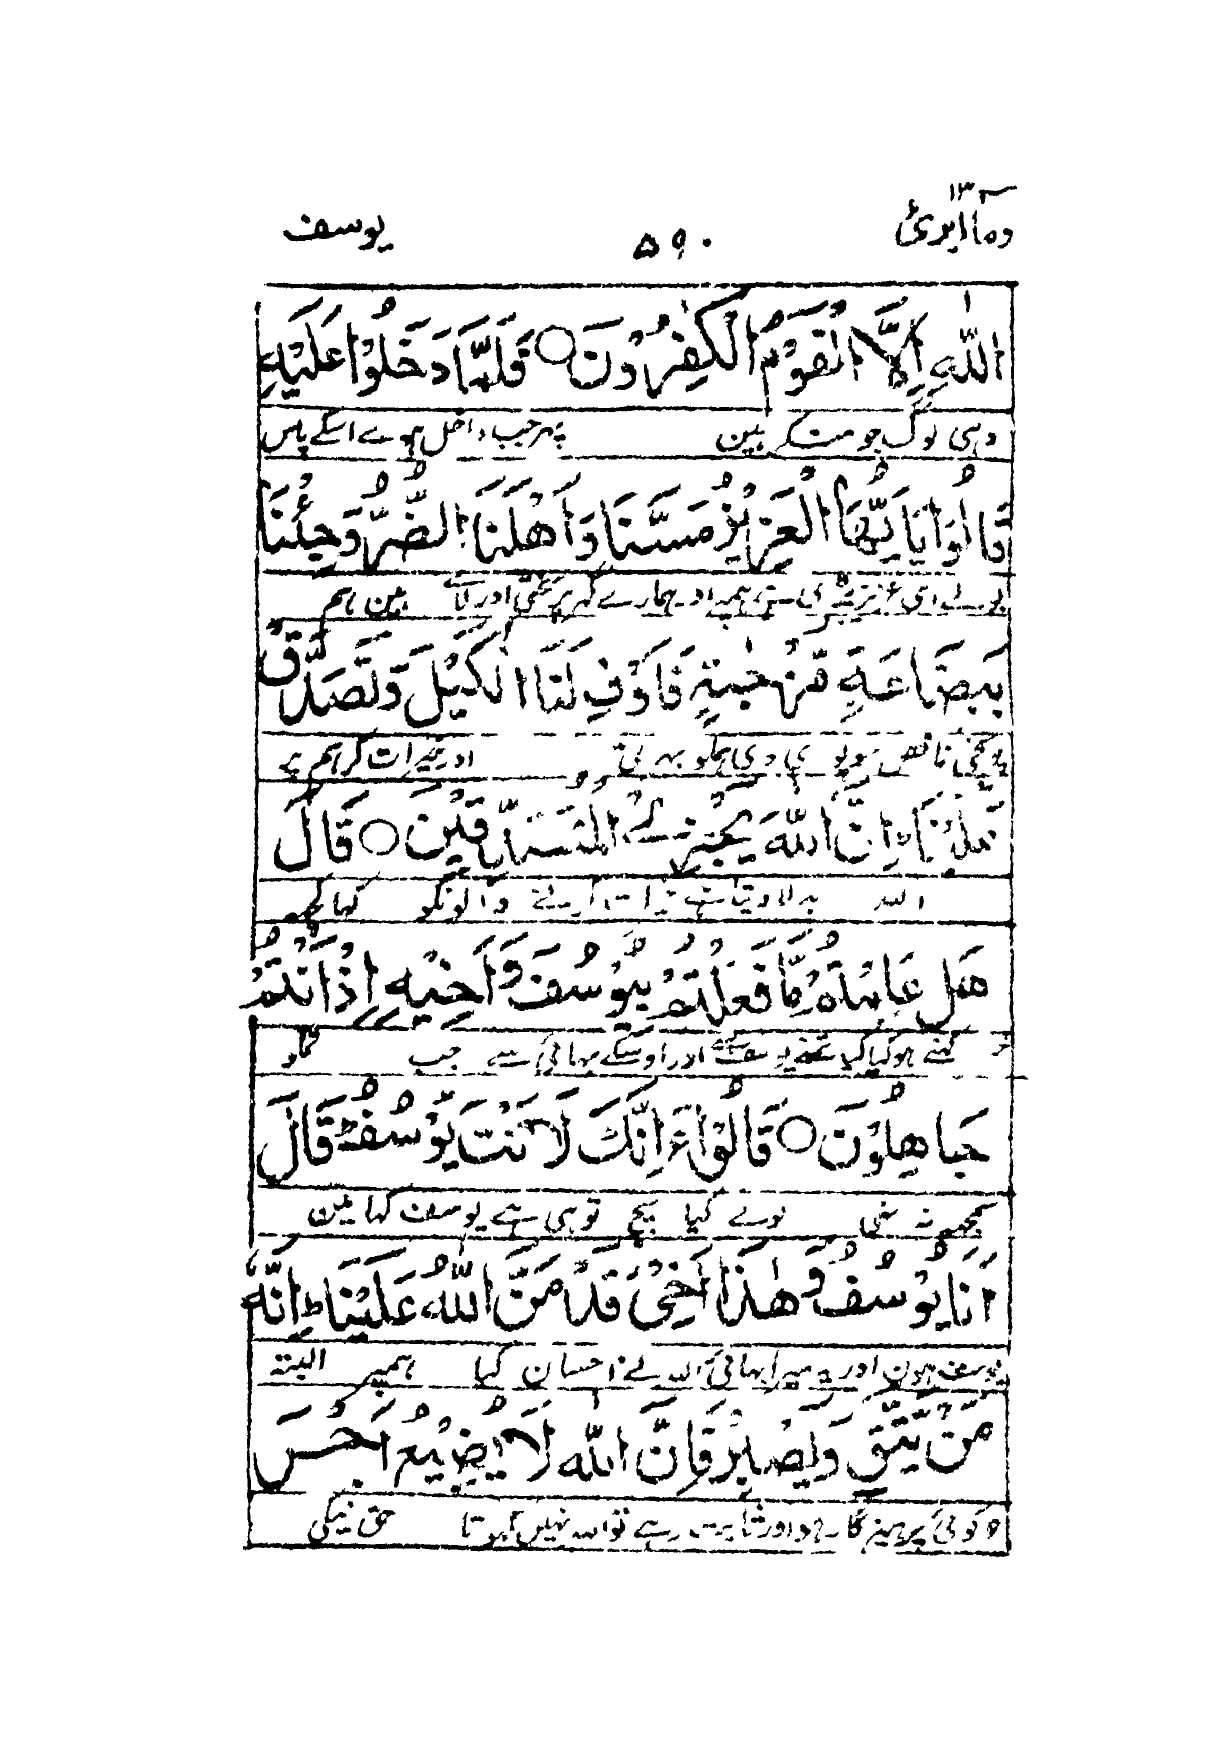 وما ابرئ ۱۳ ۵۹۰ يوسف
اللّٰهِ اِلَّا الْقَوْمُ الْكٰفِرُوْنَ ○ فَلَمَّا دَخَلُوْا عَلَيْهِ
وہی لوگ جو منکر ہین پہر جب داخل ہوے اسکے پاس
قَالُوْا يَا اَيُّهَا الْعَزِيْزُ مَسَّنَا وَ اَهْلَنَا الضُّرُّ وَجِئْنَا
بولے ای عزیز پڑی ہمپر اور ہمارے گہر پر سختی اور لائے ہین ہم
بِبِضَاعَةٍ مُّزْجٰىةٍ فَاَوْفِ لَنَا الْكَيْلَ وَتَصَدَّقْ
پونجی ناقص سو پوری دی ہمکو بہرتی اور خیرات کر ہم پر
عَلَيْنَا ؕ اِنَّ اللّٰهَ يَجْزِي الْمُتَصَدِّقِيْنَ ○ قَالَ
اللہ بدلا دیتا ہے خیرات کرنے والونکو کہا کچہہ
هَلْ عَلِمْتُمْ مَّا فَعَلْتُمْ بِيُوْسُفَ وَ اَخِيْهِ اِذْ اَنْتُمْ
کہتے ہو کیا کیا تمنے یوسف سے اور اوسکے بہائی سے جب تمکو
جَاهِلُوْنَ ○ قَالُوْا ءَاِنَّكَ لَاَنْتَ يُوْسُفُ ؕ قَالَ
سمجہہ نہ تہی بولے کیا سچ تو ہی ہے یوسف کہا مین
اَنَا يُوْسُفُ وَ هٰذَا اَخِيْ قَدْ مَنَّ اللّٰهُ عَلَيْنَا ؕ اِنَّهٗ
یوسف ہون اور یہ میرا بہائی اللہ نے احسان کیا ہمپر البتہ
مَنْ يَّتَّقِ وَ يَصْبِرْ فَاِنَّ اللّٰهَ لَا يُضِيْعُ اَجْرَ
جو کوئی پرہیزگار ہو اور ثابت رہے تو اللہ نہیں کہوتا حق نیکی